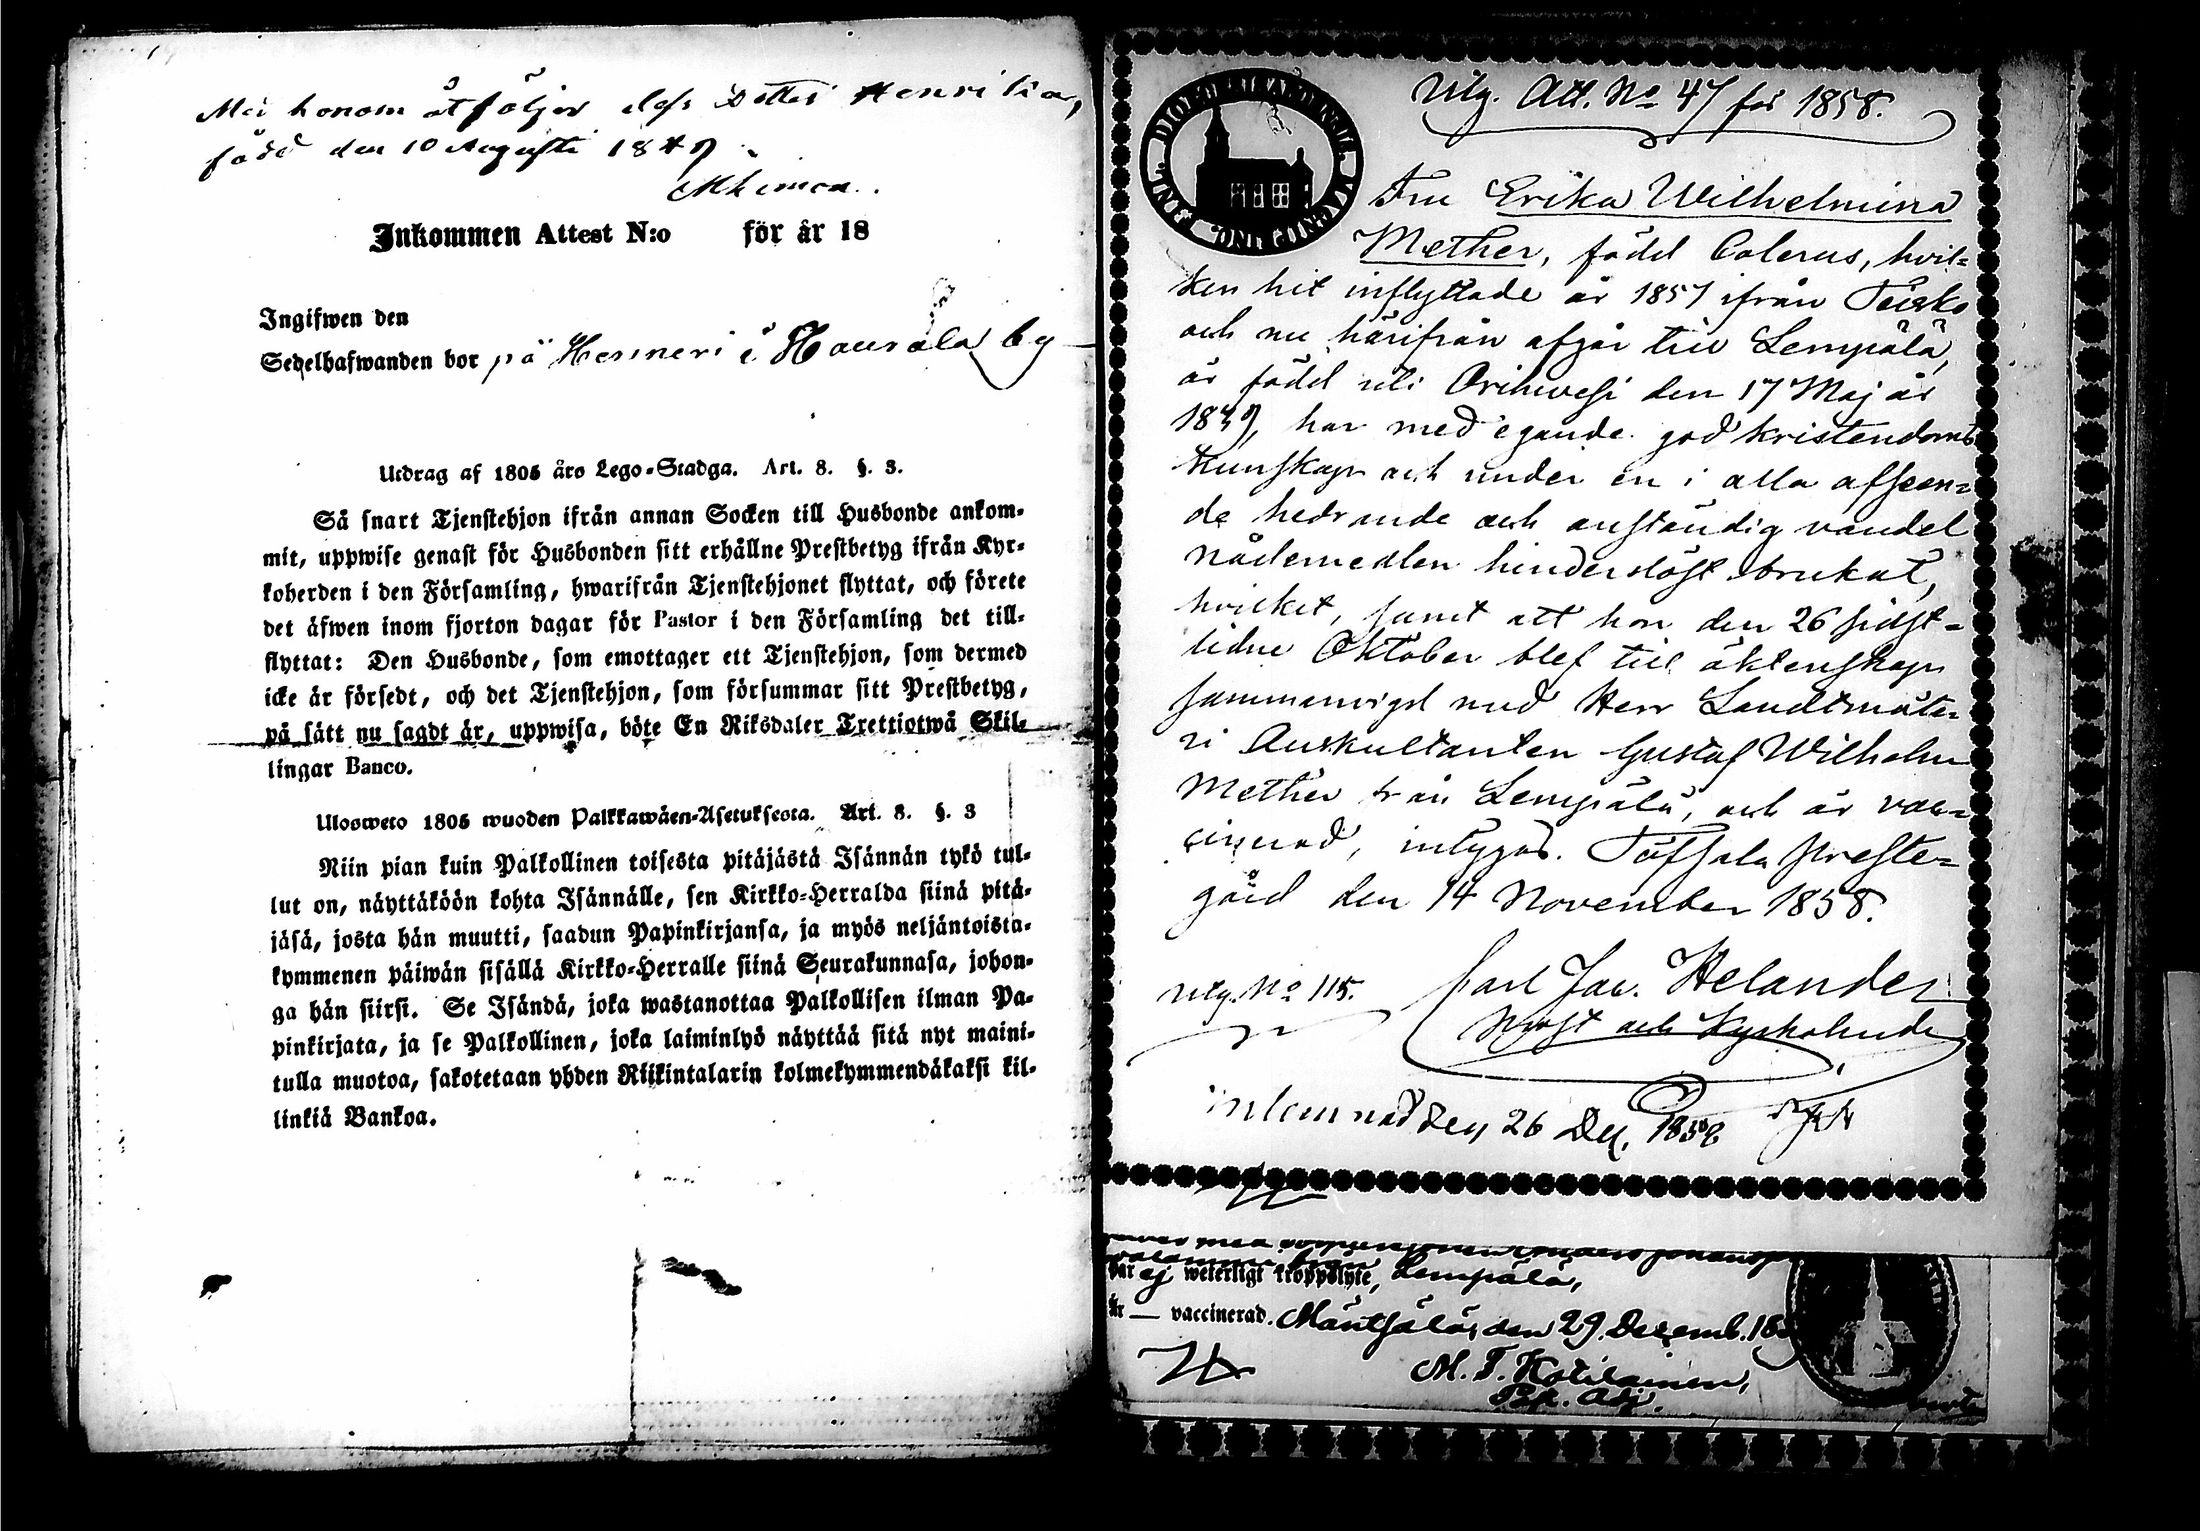 Med honom åtföljer dess Dotter Henrika,
född den 10 Augusti 1849.
Inkommen Attest N:o för år 18
Ingifwen den
Sedelhafwanden bor på Henneri i Haurala by
Utdrag af 1805 åro Lego-Stadga. Art. 8. §. 3.
Så snart Tjenstehjon ifrån annan Socken till Husbonde ankom-
mit, uppwise genast för Husbonden sitt erhållne Prestbetyg ifrån Kyr-
koherden i den Församling, hwarifrån Tjenstehjonet flyttat, och förete
det äfwen inom fjorton dagar för Pastor i den Församling det till-
flyttat: Den Husbonde, som emottager ett Tjenstehjon, som dermed
icke är försedt, och det Tjenstehjon, som försummar sitt Prestbetyg,
på sätt nu sagdt är, uppwisa, böte En Riksdaler Trettiotwå Skil-
lingar Banco.
Ulosweto 1805 wuoden Palkkawäen-Asetuksesta. Art. 8. §. 3
Niin pian kuin Palkollinen toisesta pitäjästä Isännän tykö tul-
lut on, näyttäköön kohta Isännälle, sen Kirkko-Herralda siinä pitä-
jäsä, josta hän muutti, saadun Papinkirjansa, ja myös neljäntoista-
kymmenen päiwän sisällä Kirkko-Herralle siinä Seurakunnasa, johon-
ga hän siirsi. Se Isändä, joka wastanottaa Palkollisen ilman Pa-
pinkirjata, ja se Palkollinen, joka laiminlyö näyttää sitä nyt maini-
tulla muotoa, sakotetaan yhden Riikintalarin kolmekymmendäkaksi kil-
linkiä Bankoa.
Utg. Att. No 47 för 1858.
Fru Erika Wilhelmina
Mether, född Colerus, hvil-
ken hit inflyttade år 1857 ifrån Teisko
och nu härifrån afgår till Lempälä,
är född uti Orihvesi den 17 Maj år
har med egande god kristendoms
kunskap och under en i alla afseen-
de hedrande och anständig vandel
nådemedlen hinderslöst brukat,
hvilket, samt att hon den 26 sidst-
lidne Oktober blef till äktenskap
sammanvigd med Herr Landtmäte-
ri Auskultanten Gustaf Wilhelm
Mether från Lempälä, och är vac-
cinerad, intygas. Töfsala Preste-
gård den 14 November 1858.
Utg. No 115. Carl Jac. Helander
Prost och Kyrkoherde
inlemnad den 26 Dec. 1858
har ej weterligt tröppslyte, Lempälä,
är — vaccinerad. Mäntsälä, den 29 Decemb. 18
M. T. Kotilainen,
Past. Adj.